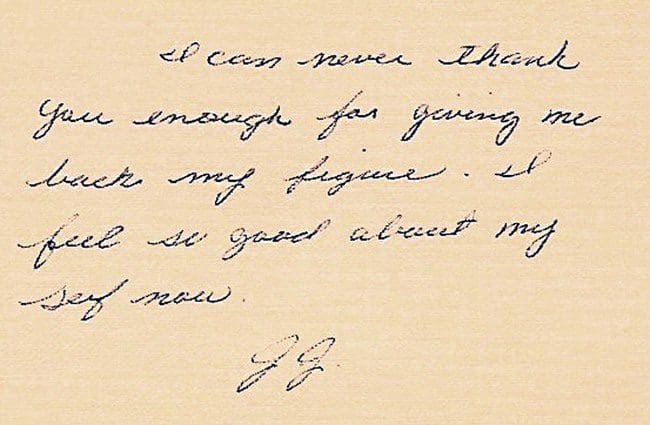 I can never thank
you enough for giving me
back my figure. I
feel so good about my
self now.
JJ.